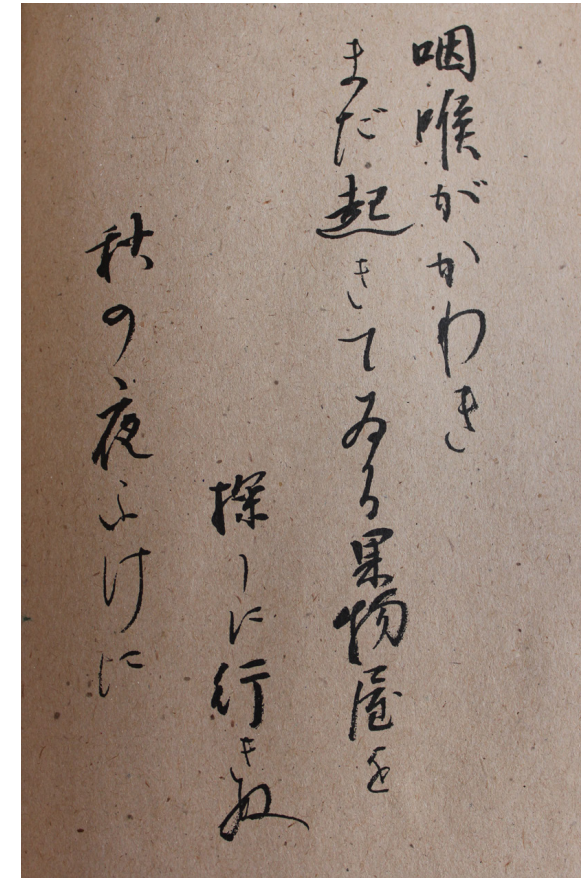 咽喉がかわき
まだ起きてゐる果物屋を
探しに行きぬ
秋の夜ふけに